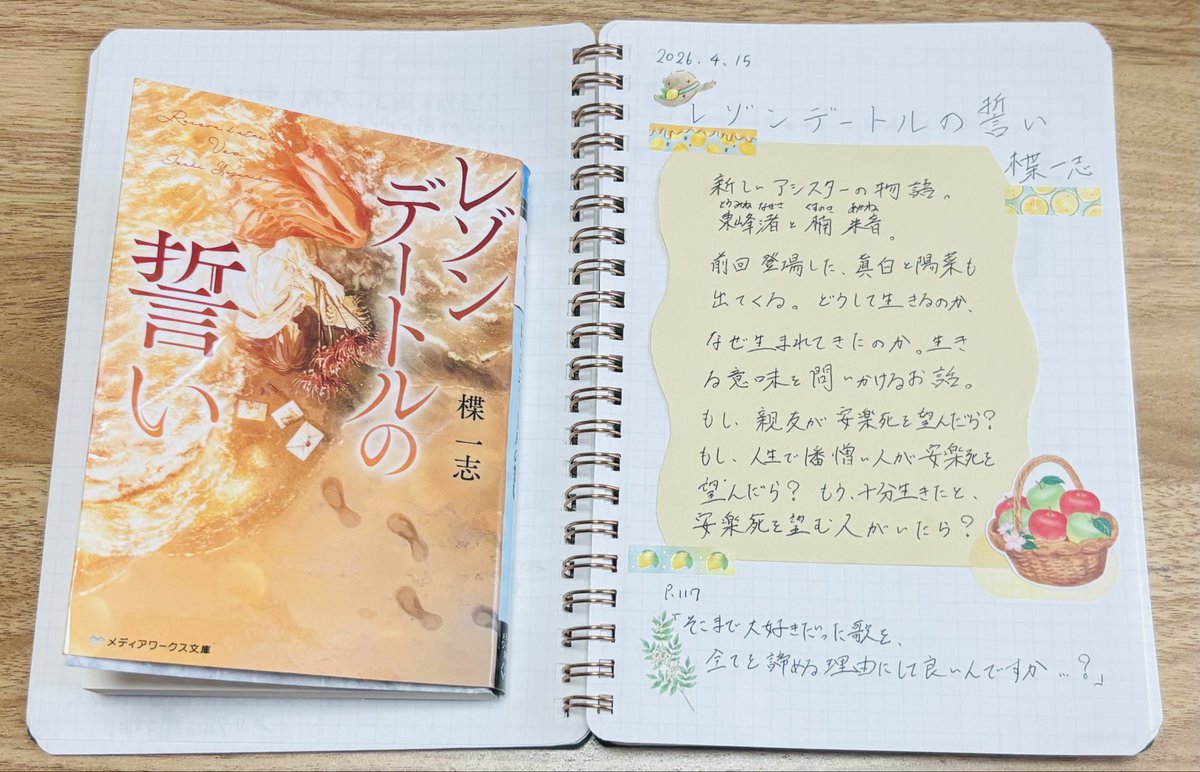 レゾン
デートルの
誓い
楪 一志
メディアワークス文庫
2026.4.15
レゾンデートルの誓い
楪 一志
新しいアシスターの物語。
とうみね なぎさ くすのき あかね
東峰渚と楠 朱音。
前回登場した、真白と陽菜も
出てくる。どうして生きるのか、
なぜ生まれてきたのか。生き
る意味を問いかけるお話。
もし、親友が安楽死を望んだら?
もし、人生で1番憎い人が安楽死を
望んだら? もう、十分生きたと、
安楽死を望む人がいたら?
P.117
「そこまで大好きだった歌を
全てを諦める理由にして良いんですか…?」